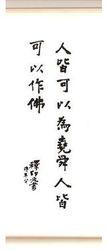 人皆可以為堯舜人皆
可以作佛
釋印光書